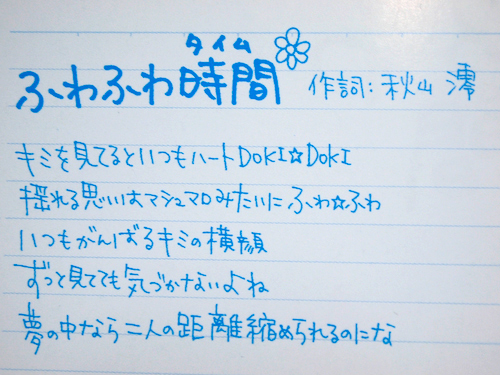 タイム
ふわふわ時間 作詞:秋山 澪
キミを見てるといつもハートDOKI☆DOKI
揺れる思いはマシュマロみたいにふわ☆ふわ
いつもがんばるキミの横顔
ずっと見てても気づかないよね
夢の中なら二人の距離縮められるのにな